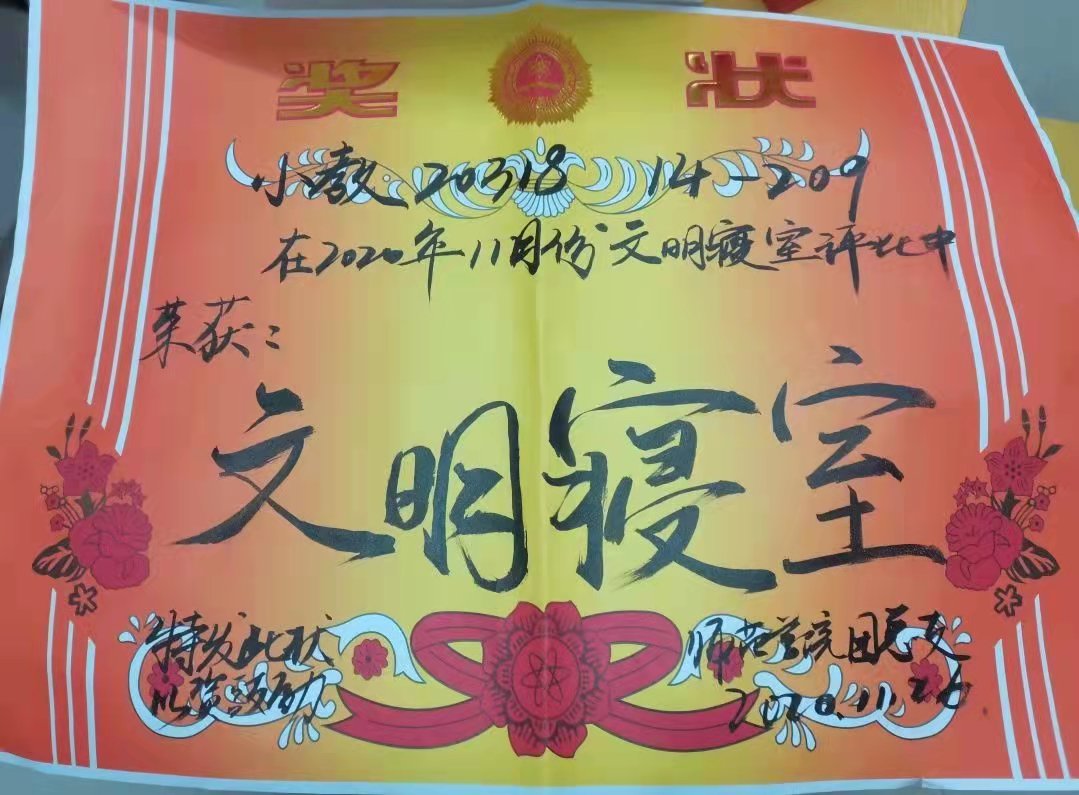 奖 状
小教20318 14-209
在2020年11月份文明寝室评比中
荣获:
文明寝室
特发此状
以资鼓励
师范学院团总支
2020.11.26